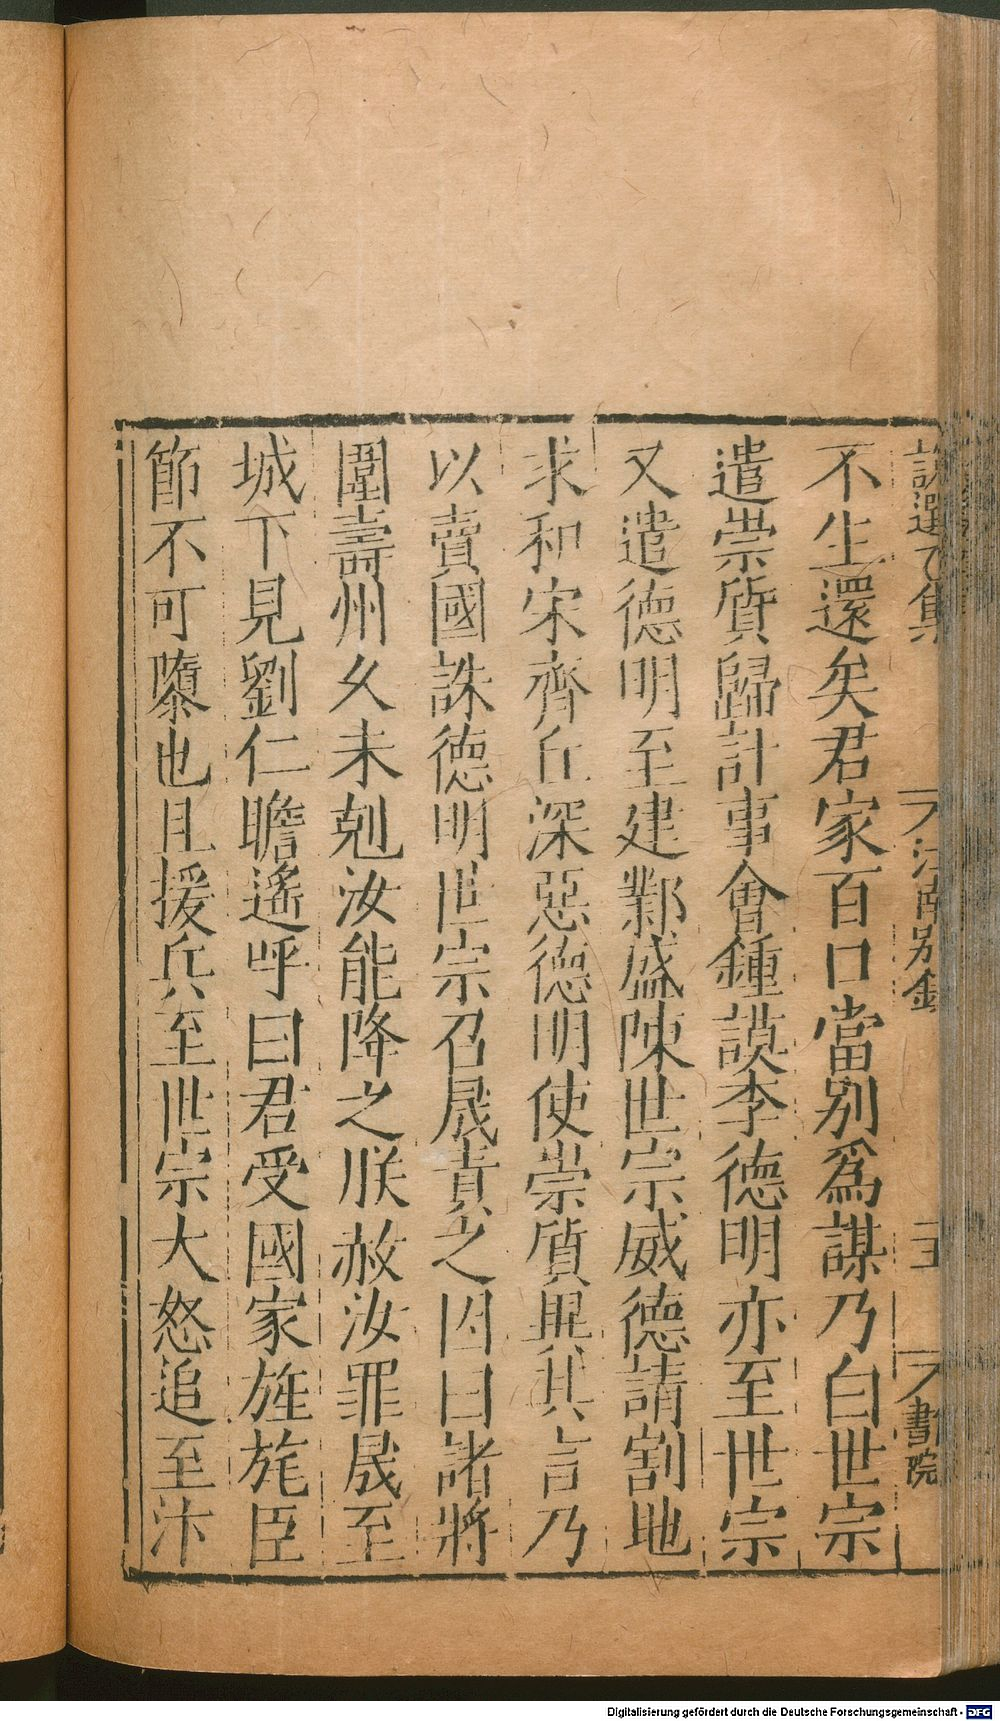 說選乙集
江南別錄
書院
不生還矣君家百口當別爲謀乃白世宗
遣崇質歸計事會鍾謨李德明亦至世宗
又遣德明至建鄴盛陳世宗威德請割地
求和宋齊丘深惡德明使崇質異其言乃
以賣國誅德明世宗召晟責之因曰諸將
圍壽州久未剋汝能降之朕赦汝罪晟至
城下見劉仁瞻遙呼曰君受國家旌旄臣
節不可隳也且援兵至世宗大怒追至汴
Digitalisierung gefördert durch die Deutsche Forschungsgemeinschaft - DFG